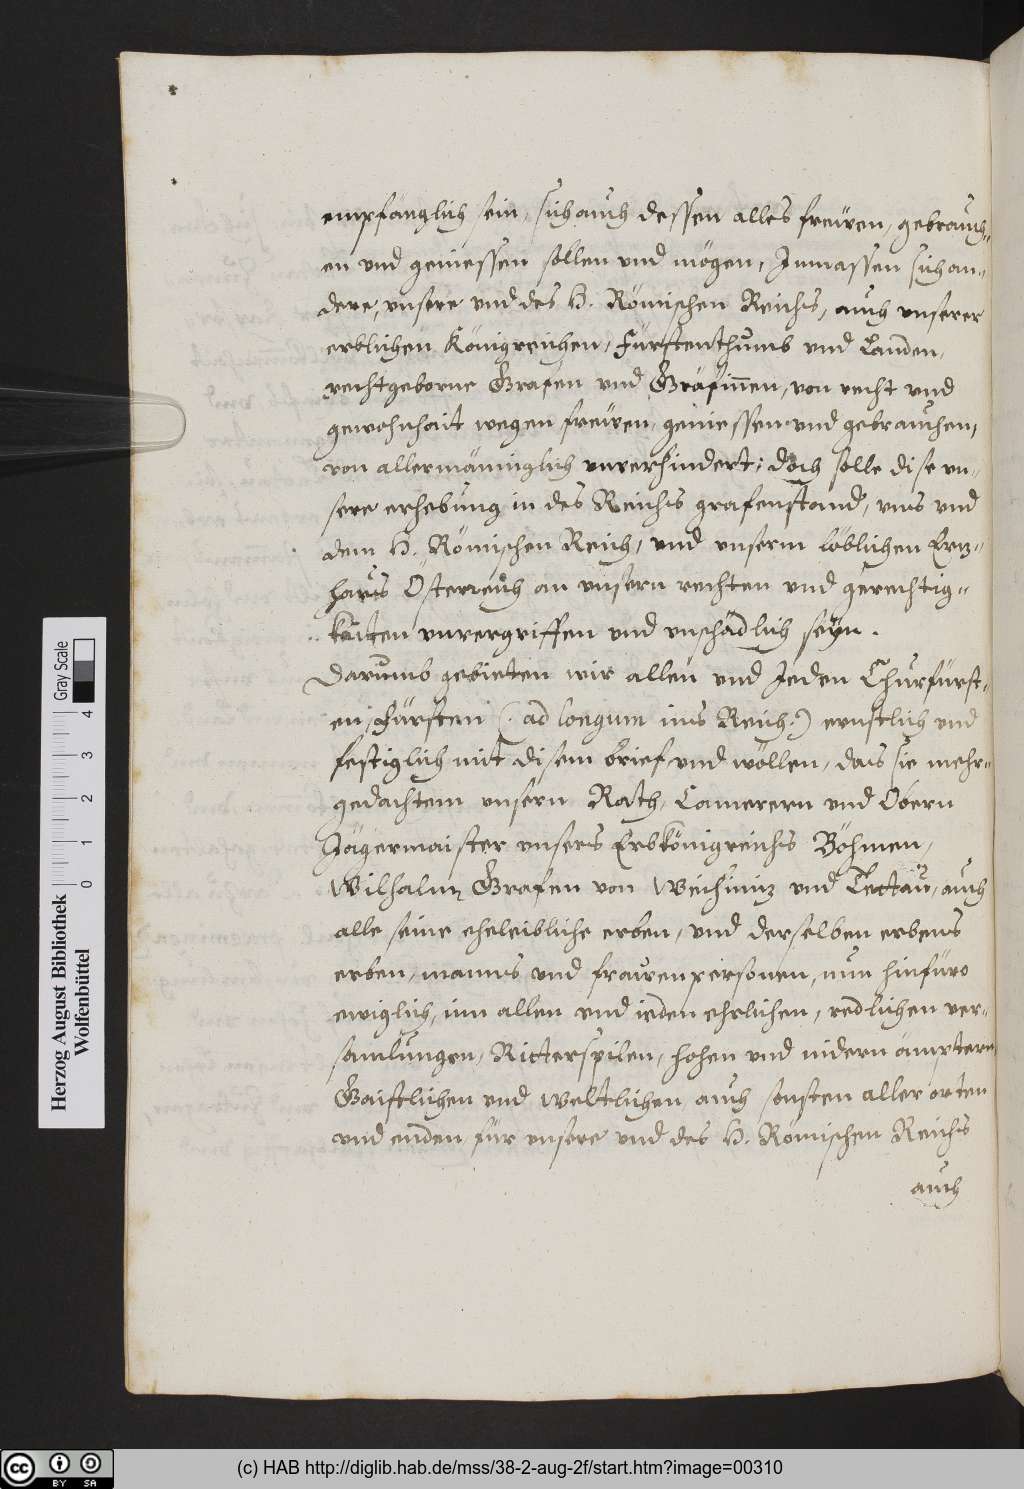 empfänglich sein, sich auch dessen alles freüen, gebrauch-
en und geniessen sollen und mögen, Inmassen sich an-
dere, unsere und des H. Römischen Reichs, auch unserer
erblichen Königreichen, Fürstenthumb und Landen,
rechtgeborne Grafen und Gräfinnen, von recht und
gewohnhait wegen freüen, geniessen und gebrauchen,
von allermänniglich unverhindert; doch solle dise un-
sere erhebung in des Reichs grafenstand, uns und
dem H. Römischen Reich, und unserm löblichen Erz-
haus Österreich an unsern rechten und gerechtig-
kaiten unvergriffen und unschädlich seyn.
Darumb gebieten wir allen und Jeden Churfürst-
en, Fürsten (: ad longum ins Reich:) ernstlich und
festiglich mit disem brief und wöllen, das sie mehr-
gedachtem unsern Rath, Camerern und Obern
Jägermaister unsers Erbkönigreichs Böhmen,
Wilhalm Grafen von Wchiniz und Tettau, auch
alle seine eheleibliche erben, und derselben erbens
erben, manns und frauenpersonen, nun hinfüro
ewiglich, inn allen und ieden ehrlichen, redlichen ver-
samlungen, Ritterspilen, hohen und nidern ämptern
Gaistlichen und weltlichen auch sonsten aller orten
und enden für unsere und des H. Römischen Reichs
auch
Herzog August Bibliothek
Wolfenbüttel
0 1 2 3 4
Gray Scale
cc BY SA
(c) HAB http://diglib.hab.de/mss/38-2-aug-2f/start.htm?image=00310